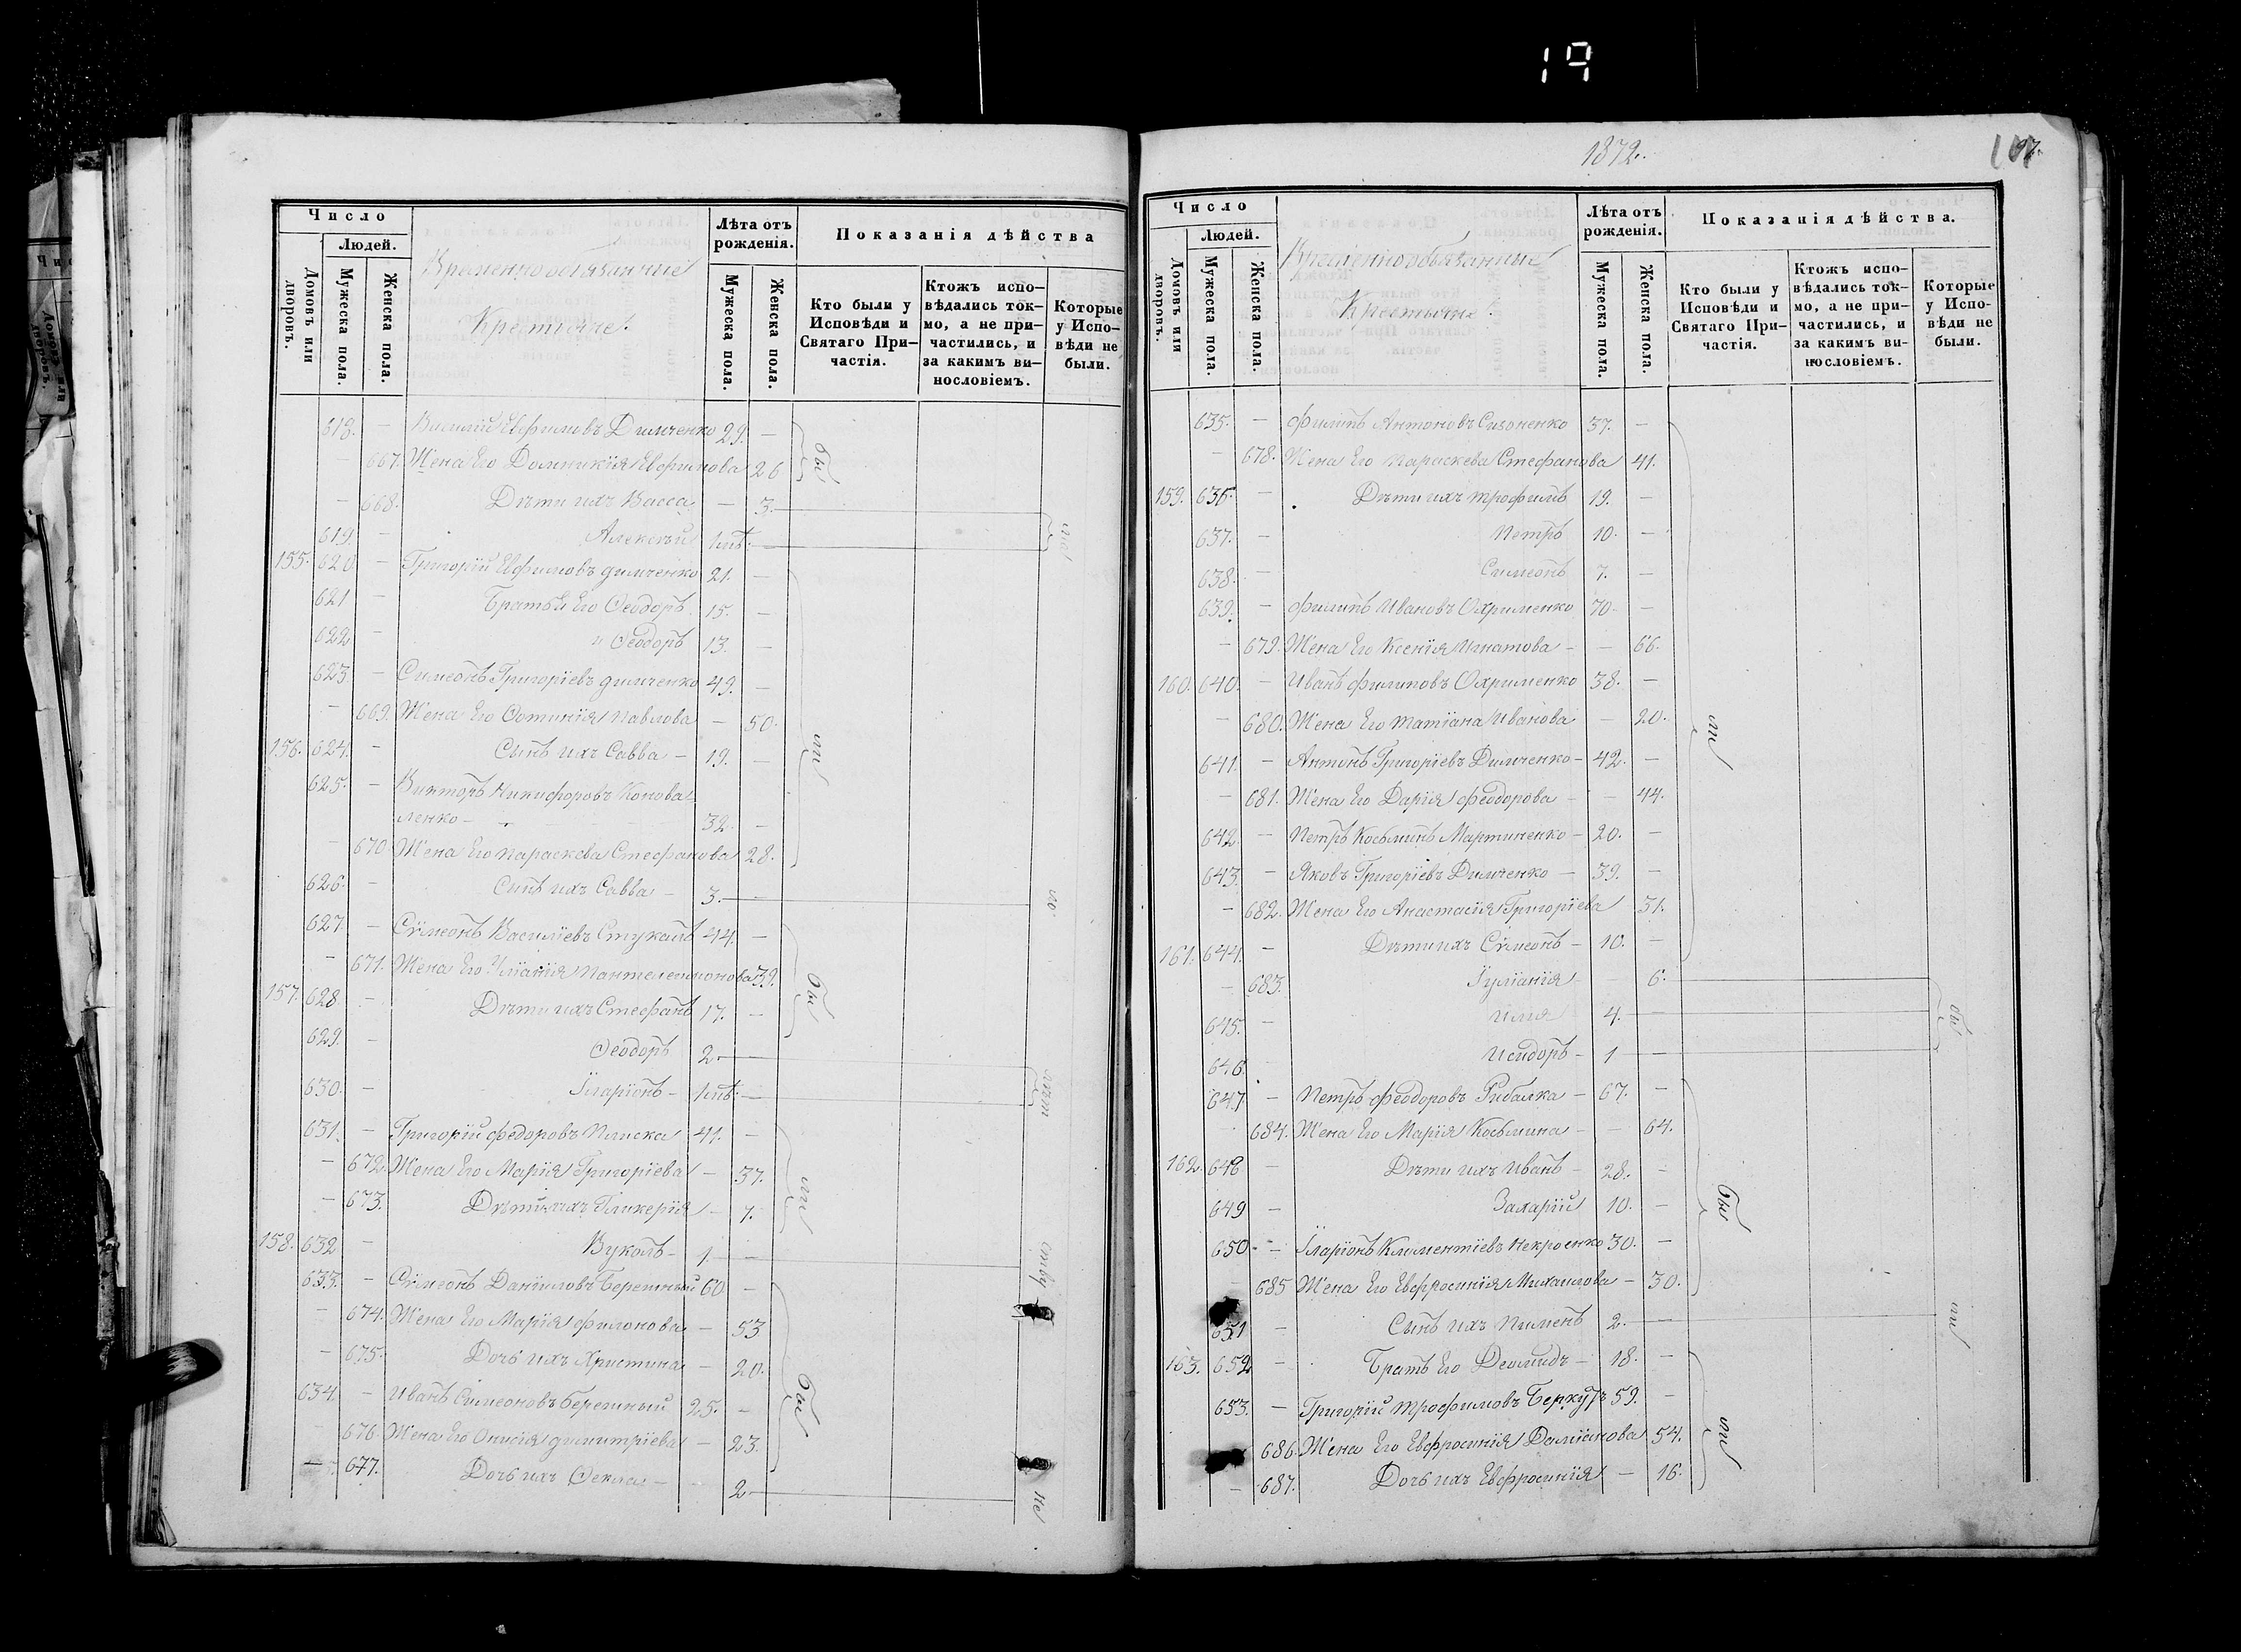 19
Число
Людей.
Домовъ или дворовъ.
Мужеска пола.
Женска пола.
Временнообязанные
Крестьяне.
Лѣта отъ рожденія.
Мужеска пола.
Женска пола.
Показанія дѣйства
Кто были у Исповѣди и Святаго Причастія.
Ктожъ исповѣдались токмо, а не причастились, и за какимъ винословіемъ.
Которые у Исповѣди не были.
618. — Василій Евфимовъ Димченко 29. —
— 667. Жена Его Домникія Евфимова 26
— 668. Дѣти ихъ Васса — 3.
619. — Алексѣй 1лѣт. —
155. 620 — Григорій Евфимовъ Димченко 21. —
621 — Братья Его Ѳеодоръ 15. —
622 — " Ѳеодоръ 13. —
623 — Симеонъ Григоріевъ Димченко 49. —
— 669. Жена Его Фотинія Павлова — 50.
156. 624. — Сынъ ихъ Савва — 19. —
625. — Викторъ Никифоровъ Конова-
ленко — 32. —
— 670. Жена Его Параскева Стефанова 28.
626. — Сынъ ихъ Савва — 3. —
627. — Сѵмеонъ Василіевъ Стукалъ 44. —
— 671. Жена Его Уліанія Пантелеимонова 39.
157. 628 — Дѣти ихъ Стефанъ 17. —
629. — Ѳеодоръ 2. —
630. — Іларіонъ — 1лѣт. —
631. — Григорій Федоровъ Пляска 41. —
— 672. Жена Его Марія Григоріева — 37.
— 673. Дѣти ихъ Гликерія — 7.
158. 632 — Вуколъ — 1. —
633. — Сѵмеонъ Даніиловъ Берешный 60 —
— 674. Жена Его Марія Филонова — 53
— 675. Дочь ихъ Христина — 20.
634. — Иванъ Симеоновъ Берешный 25. —
676. Жена Его Онисія Димитріева — 23.
— 677. Дочь ихъ Ѳекла — 2
бы
ли
бы
ли
бы
не
1872.
Число
Людей.
Домовъ или дворовъ.
Мужеска пола.
Женска пола.
Временнообязанные
Крестьяне.
Лѣта отъ рожденія.
Мужеска пола.
Женска пола.
Показанія дѣйства.
Кто были у Исповѣди и Святаго Причастія.
Ктожъ исповѣдались токмо, а не причастились, и за какимъ винословіемъ.
Которые у Исповѣди не были.
635. — Филипъ Антоновъ Сизоненко 37. —
— 678. Жена Его Параскева Стефанова 41.
159. 636. — Дѣти ихъ Трофимъ 19. —
637. — Петръ 10. —
638. — Симеонъ 7. —
639. — Филипъ Ивановъ Охрименко 70. —
— 679. Жена Его Ксенія Игнатова — — 66.
160. 640. — Иванъ Филиповъ Охрименко 38. —
— 680. Жена Его Татіана Иванова — 20.
641. — Антонъ Григоріевъ Димченко — 42. —
— 681. Жена Его Дарія Феодорова — — 44.
642 — Петръ Косьминъ Мартиненко — 20. —
643. — Яковъ Григоріевъ Димченко — 39. —
— 682. Жена Его Анастасія Григоріева 31.
161. 644. — Дѣти ихъ Сѵмеонъ — 10. —
— 683. Іуліанія 6.
645. — Илія 4. —
646. Исидоръ — 1 —
647. — Петръ Феодоровъ Рибалка — 67. —
684. Жена Его Марія Косьмина — — 64.
162. 648 — Дѣти ихъ Иванъ — 28. —
649 — Захарій 10. —
650 — Іларіонъ Климентіевъ Некроенко 30. —
685 Жена Его Евфросинія Михаилова — 30.
651 — Сынъ ихъ Пименъ 2. —
163. 652 — Братъ Его Деомидъ — 18. —
653. — Григорій Трофимовъ Беркутъ 59. —
686. Жена Его Евфросинія Даміанова 54.
— 687. Дочь ихъ Евфросинія — 16.
ли
бы
бы
ли
ли